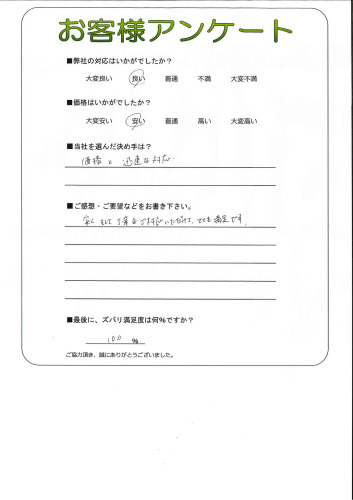 お客様アンケート
■弊社の対応はいかがでしたか？
大変良い 良い 普通 不満 大変不満
■価格はいかがでしたか？
大変安い 安い 普通 高い 大変高い
■当社を選んだ決め手は？
価格と迅速な対応
■ご感想・ご要望などをお書き下さい。
安く そして丁寧なご対応いただけて、とても満足です。
■最後に、ズバリ満足度は何%ですか？
100 %
ご協力頂き、誠にありがとうございました。